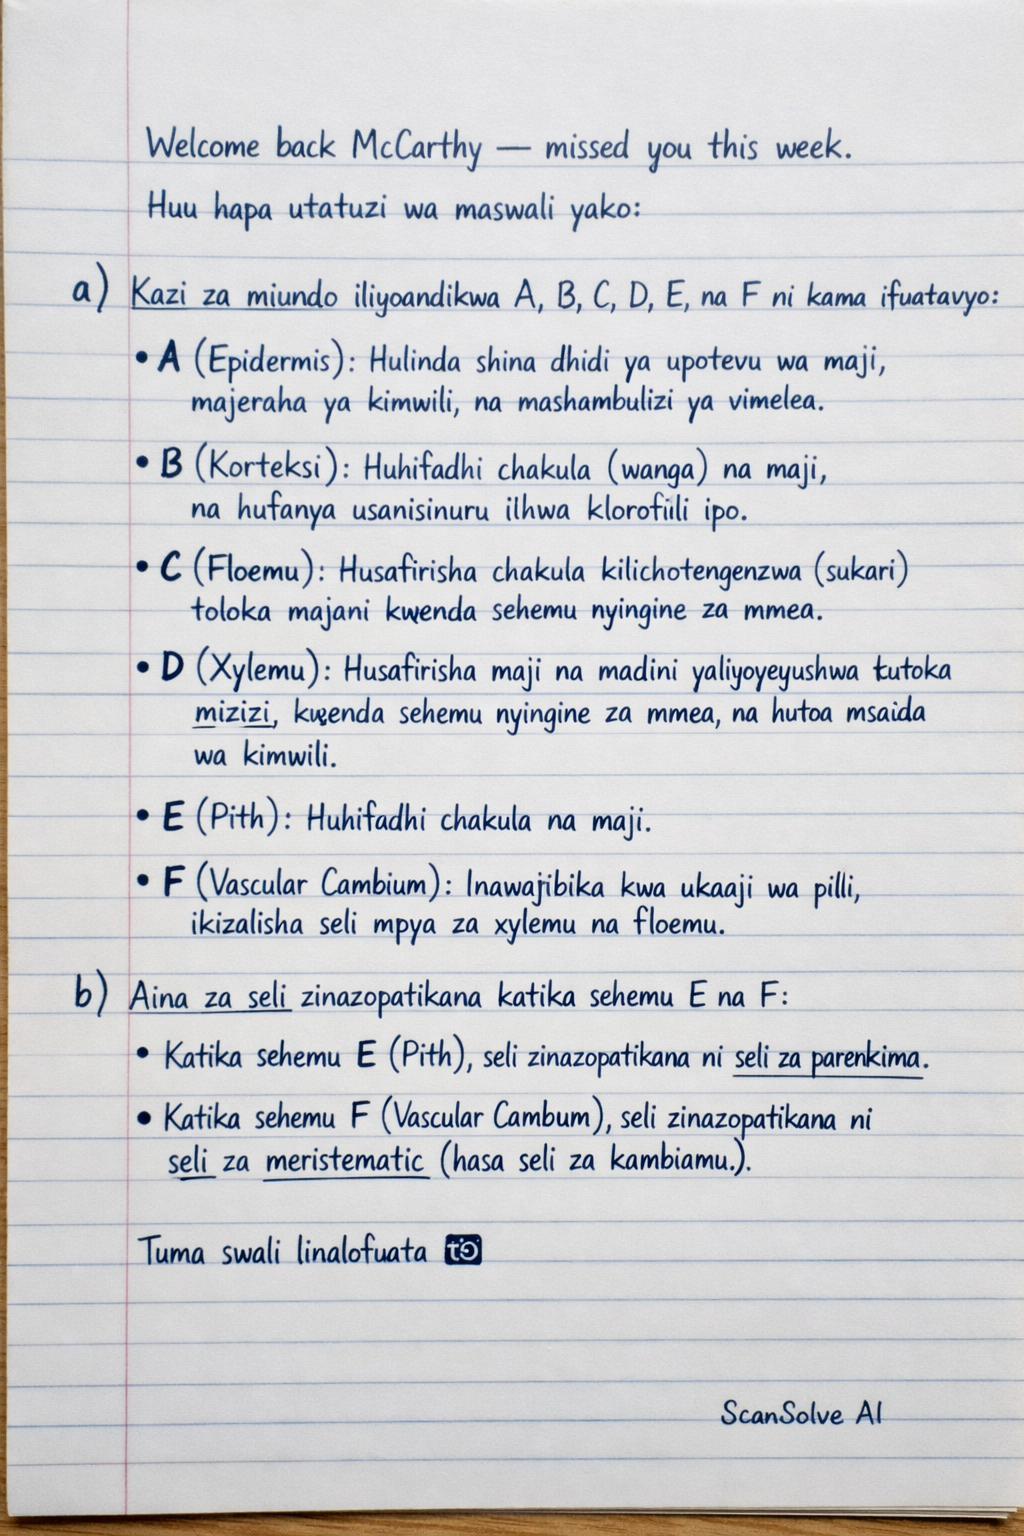 Welcome back McCarthy — missed you this week.
Huu hapa utatuzi wa maswali yako:
a) Kazi za miundo iliyoandikwa A, B, C, D, E, na F ni kama ifuatavyo:
• A (Epidermis): Hulinda shina dhidi ya upotevu wa maji,
majeraha ya kimwili, na mashambulizi ya vimelea.
• B (Korteksi): Huhifadhi chakula (wanga) na maji,
na hufanya usanisinuru ilhwa klorofiili ipo.
• C (Floemu): Husafirisha chakula kilichotengenzwa (sukari)
toloka majani kwenda sehemu nyingine za mmea.
• D (Xylemu): Husafirisha maji na madini yaliyoyeyushwa kutoka
mizizi, kwenda sehemu nyingine za mmea, na hutoa msaida
wa kimwili.
• E (Pith): Huhifadhi chakula na maji.
• F (Vascular Cambium): Inawajibika kwa ukaaji wa pilli,
ikizalisha seli mpya za xylemu na floemu.
b) Aina za seli zinazopatikana katika sehemu E na F:
• Katika sehemu E (Pith), seli zinazopatikana ni seli za parenkima.
• Katika sehemu F (Vascular Cambum), seli zinazopatikana ni
seli za meristematic (hasa seli za kambiamu.).
Tuma swali linalofuata
ScanSolve AI